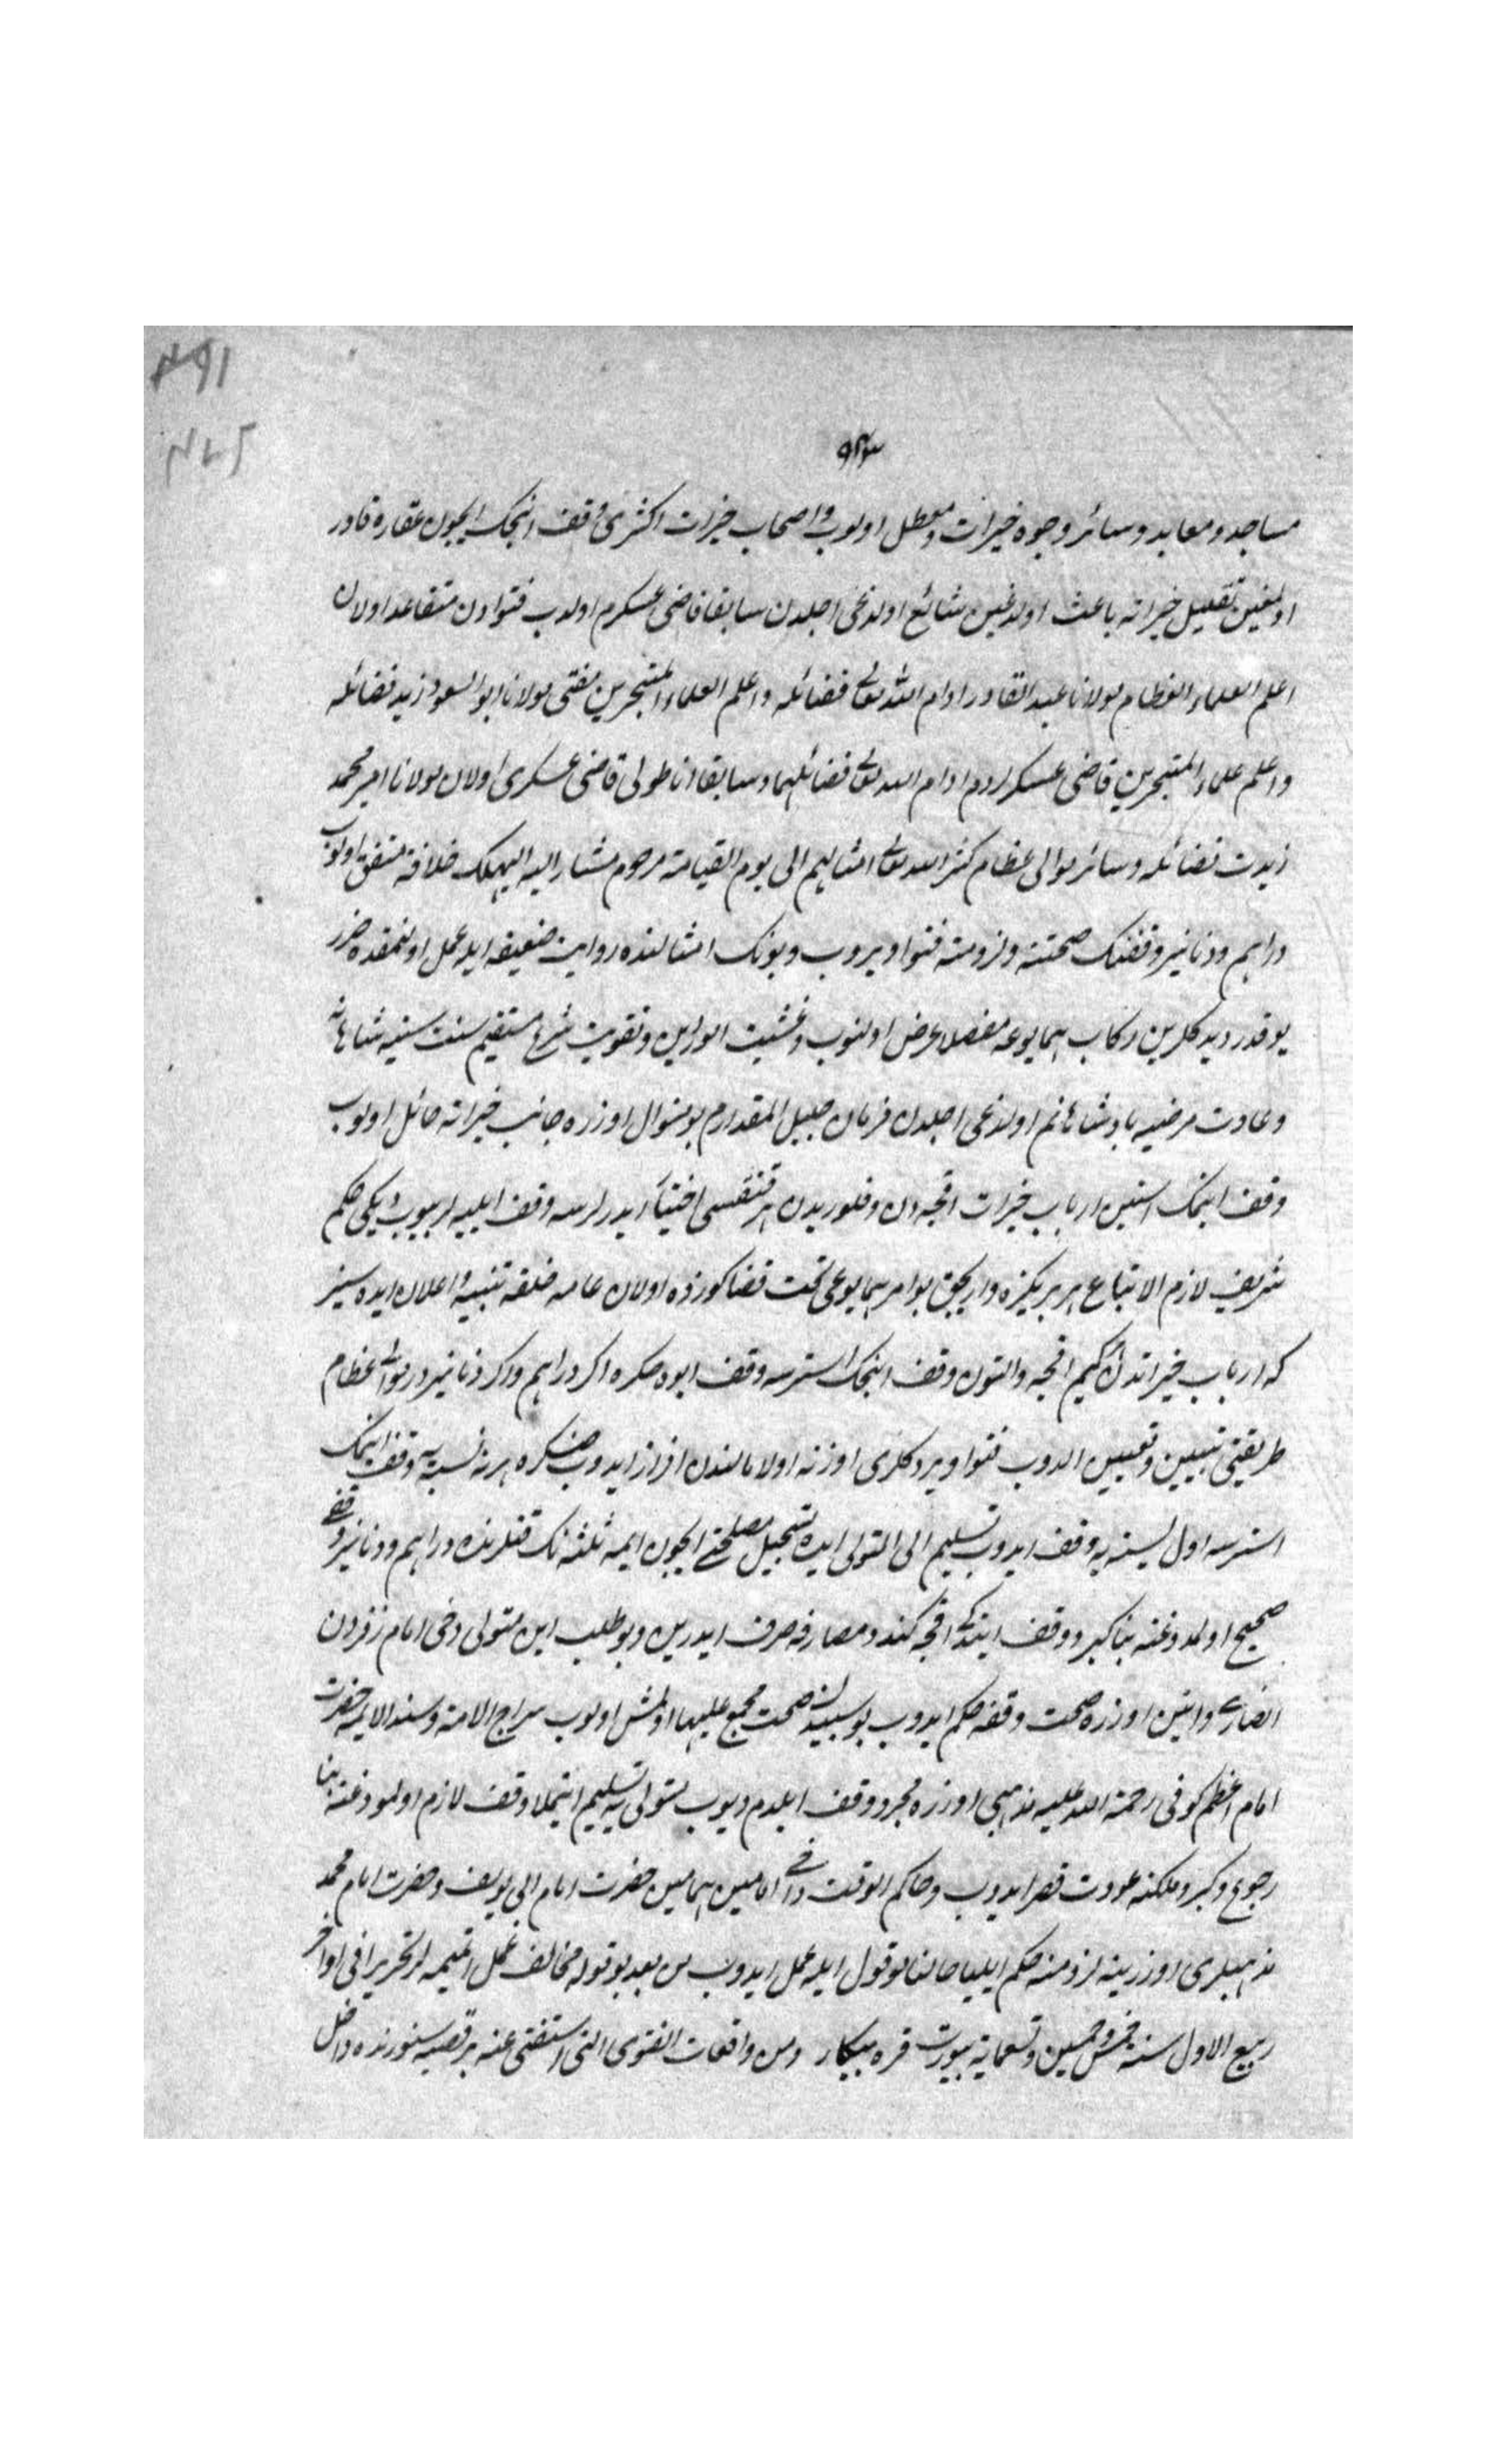 مساجد ومعابد وسائر وجوه خيرات معطل اولوب واصحاب خيرات اكثرى وقف اتمك ايچون عقاره قادر
اولمغين تقليل خيراته باعث اولدغين شائع اولدغى اجلدن سابقا قاضى عسكرم اولوب فتوادن متقاعد اولان
اعلم العلماء العظام مولانا عبد القادر ادام الله تعالى فضائله واعلم العلماء المتبحرين مفتى مولانا ابو السعود زيد فضائله
واعلم علماء المتبحرين قاضى عسكر ادام الله تعالى فضائلهما وسابقا اناطولى قاضى عسكرى اولان مولانا امير محمد
زيدت فضائله وسائر موالى عظام كثر الله تعالى امثالهم الى يوم القيامة مرحوم مشار اليه خلافنه متفق اولوب
دراهم ودنانير وقفنك صحتنه ولزومنه فتوا ويروب وبونك امثالنده روايت ضعيفه ايله عمل اولنمقده ضرر
يوقدر ديدكلرين ركاب همايونمه مفصلا عرض اولنوب وتقويت شرع مستقيم سنت سنيه شاهانه
وعادت مرضيه پادشاهانم اولدغى اجلدن فرمان جليل المقدارم بو منوال اوزره جانب خيراته مائل اولوب
وقف ايتمك استين ارباب خيرات اقچه دن وفلوريدن هر قنغيسى اختيار ايدرلرسه وقف ايليه لر بيوب ديكى حكم
شريف لازم الاتباع هر بريكزه واريجق بو امر همايونمى تحت قضاكوزده اولان عامه خلقه تنبيه واعلان ايده سيز
كه ارباب خيراتدن هر كيم اقچه والتون وقف اتمك استرسه اكر دراهم واكر دنانيردر موالى عظام
طريقنى تبيين وتعيين ايدوب فتوا ويردكلرى اوزره اولا مالندن افراز ايدوب صكره هر نه نسنه يه وقف ايتمك
استرسه اول نسنه يه وقف ايدوب تسليم الى المتولى ايده تسجيل مصلحتى ايچون ائمه ثلثه نك قتلرنده دراهم ودنانير وقفى
صحيح اولمدوغنه بناء كيرو وقف ايتدكى اقچه كندو مصارفه صرف ايدرين ديو طلب ايدن متولى دخى امام زفردن
انصارى روايتى اوزره صحت وقفه حكم ايدوب بو سببدن صحت مجمع عليها اولمش اولوب سراج الامة وسند الائمه حضرت
امام اعظم كوفى رحمة الله عليه مذهبى اوزره مجرد وقف ايلدم ديوب متولى يه تسليم اتمكله وقف لازم اولمدوغنه بناء
رجوع وكيرو ملكنه عودت قصد ايدوب وحاكم الوقت دخى امامين همامين حضرت امام ابى يوسف وحضرت امام محمد
مذهبلرى اوزرينه لزومنه حكم ايليا حاليا بو قول ايله عمل ايدوب من بعد بو قوله مخالف عمل اتميه لر تحريرا فى اواخر
ربيع الاول سنة خمس وخمسين وتسعمايه بيورت قره بيكار ومن واقعات الفتوى التى استفتى عنه بر قصبه سنورنده داخل